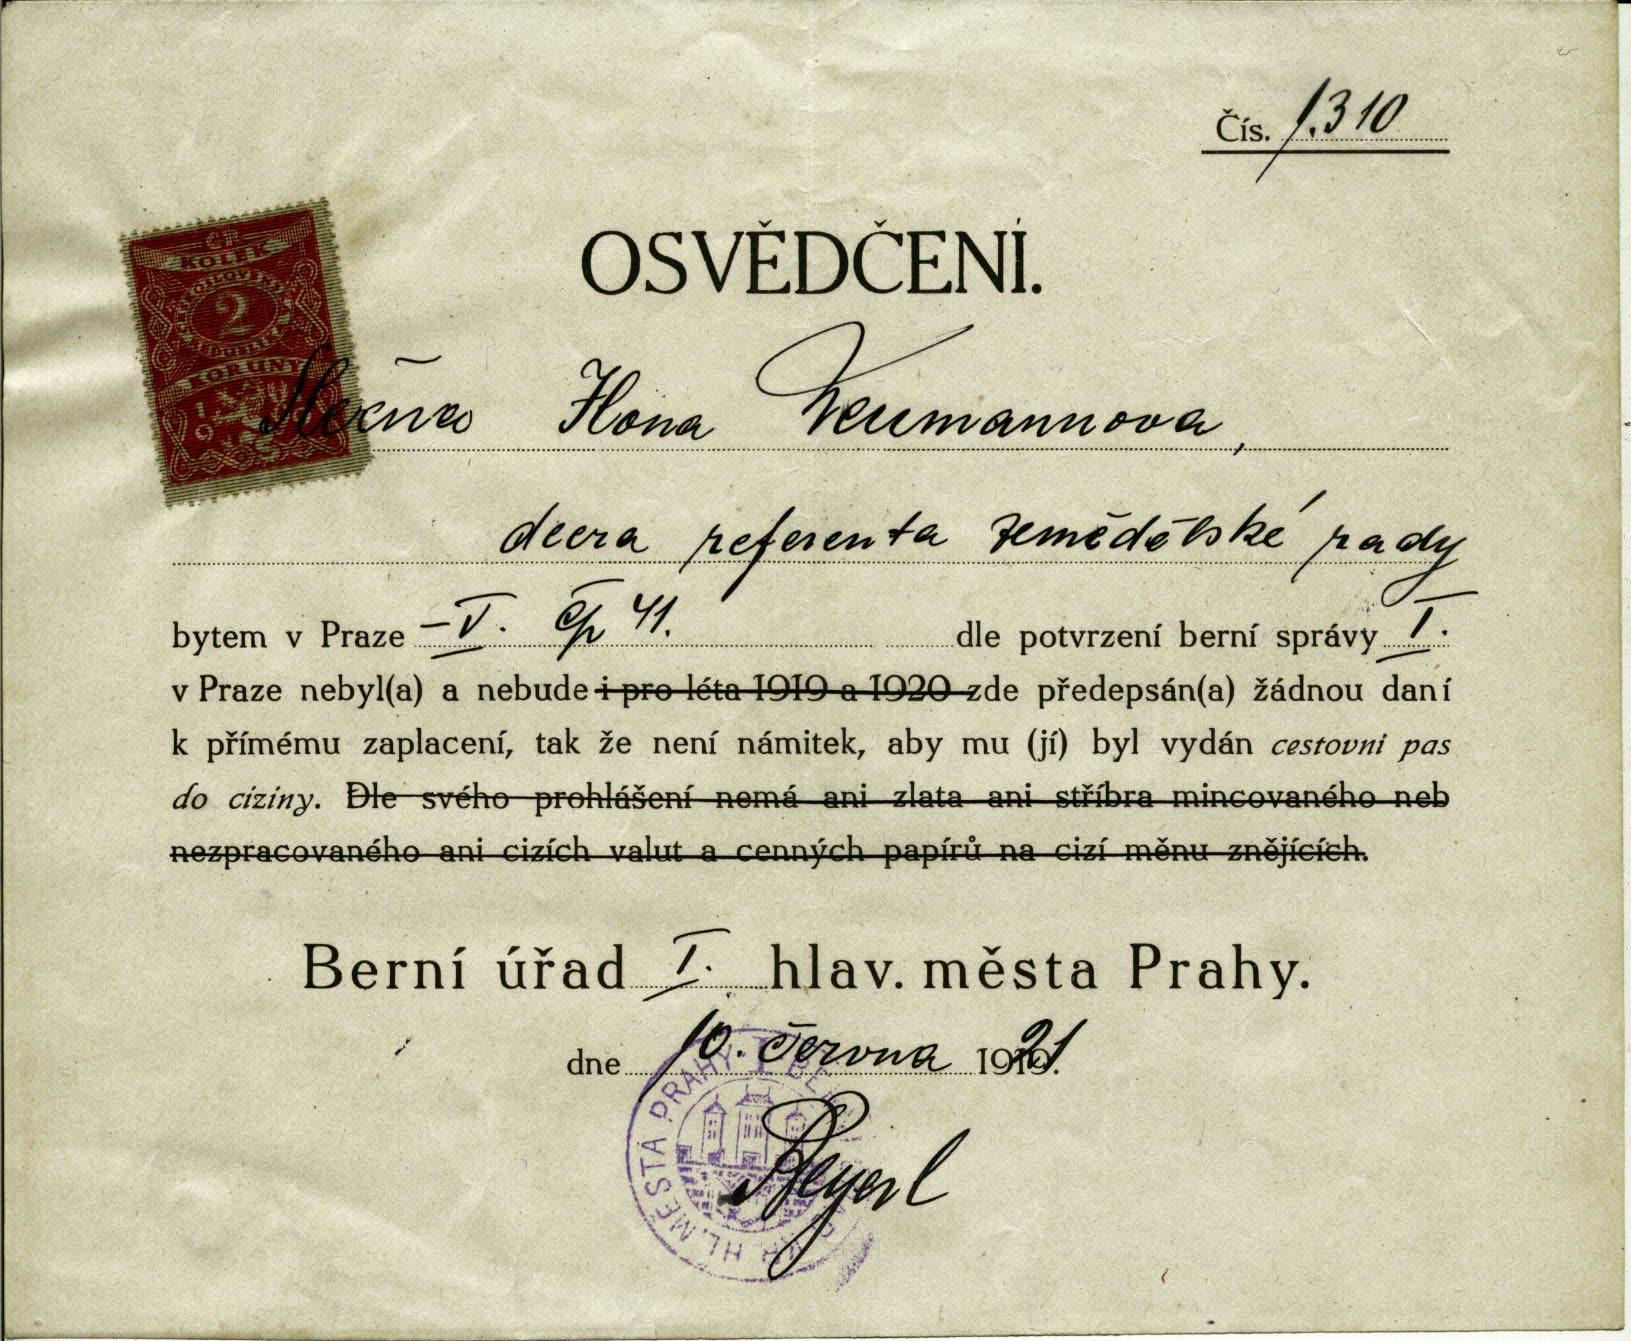 Čís. 1.310
ČR
KOLEK
2
KORUNY
OSVĚDČENÍ.
Slečna Ilona Neumannova,
dcera referenta zemědělské rady
bytem v Praze –V. čp 41. dle potvrzení berní správy I.
v Praze nebyl(a) a nebude i pro léta 1919 a 1920 zde předepsán(a) žádnou daní
k přímému zaplacení, tak že není námitek, aby mu (jí) byl vydán cestovni pas
do ciziny. Dle svého prohlášení nemá ani zlata ani stříbra mincovaného neb
nezpracovaného ani cizích valut a cenných papírů na cizí měnu znějících.
Berní úřad I. hlav. města Prahy.
dne 10. června 1921.
HL. MĚSTA PRAHY